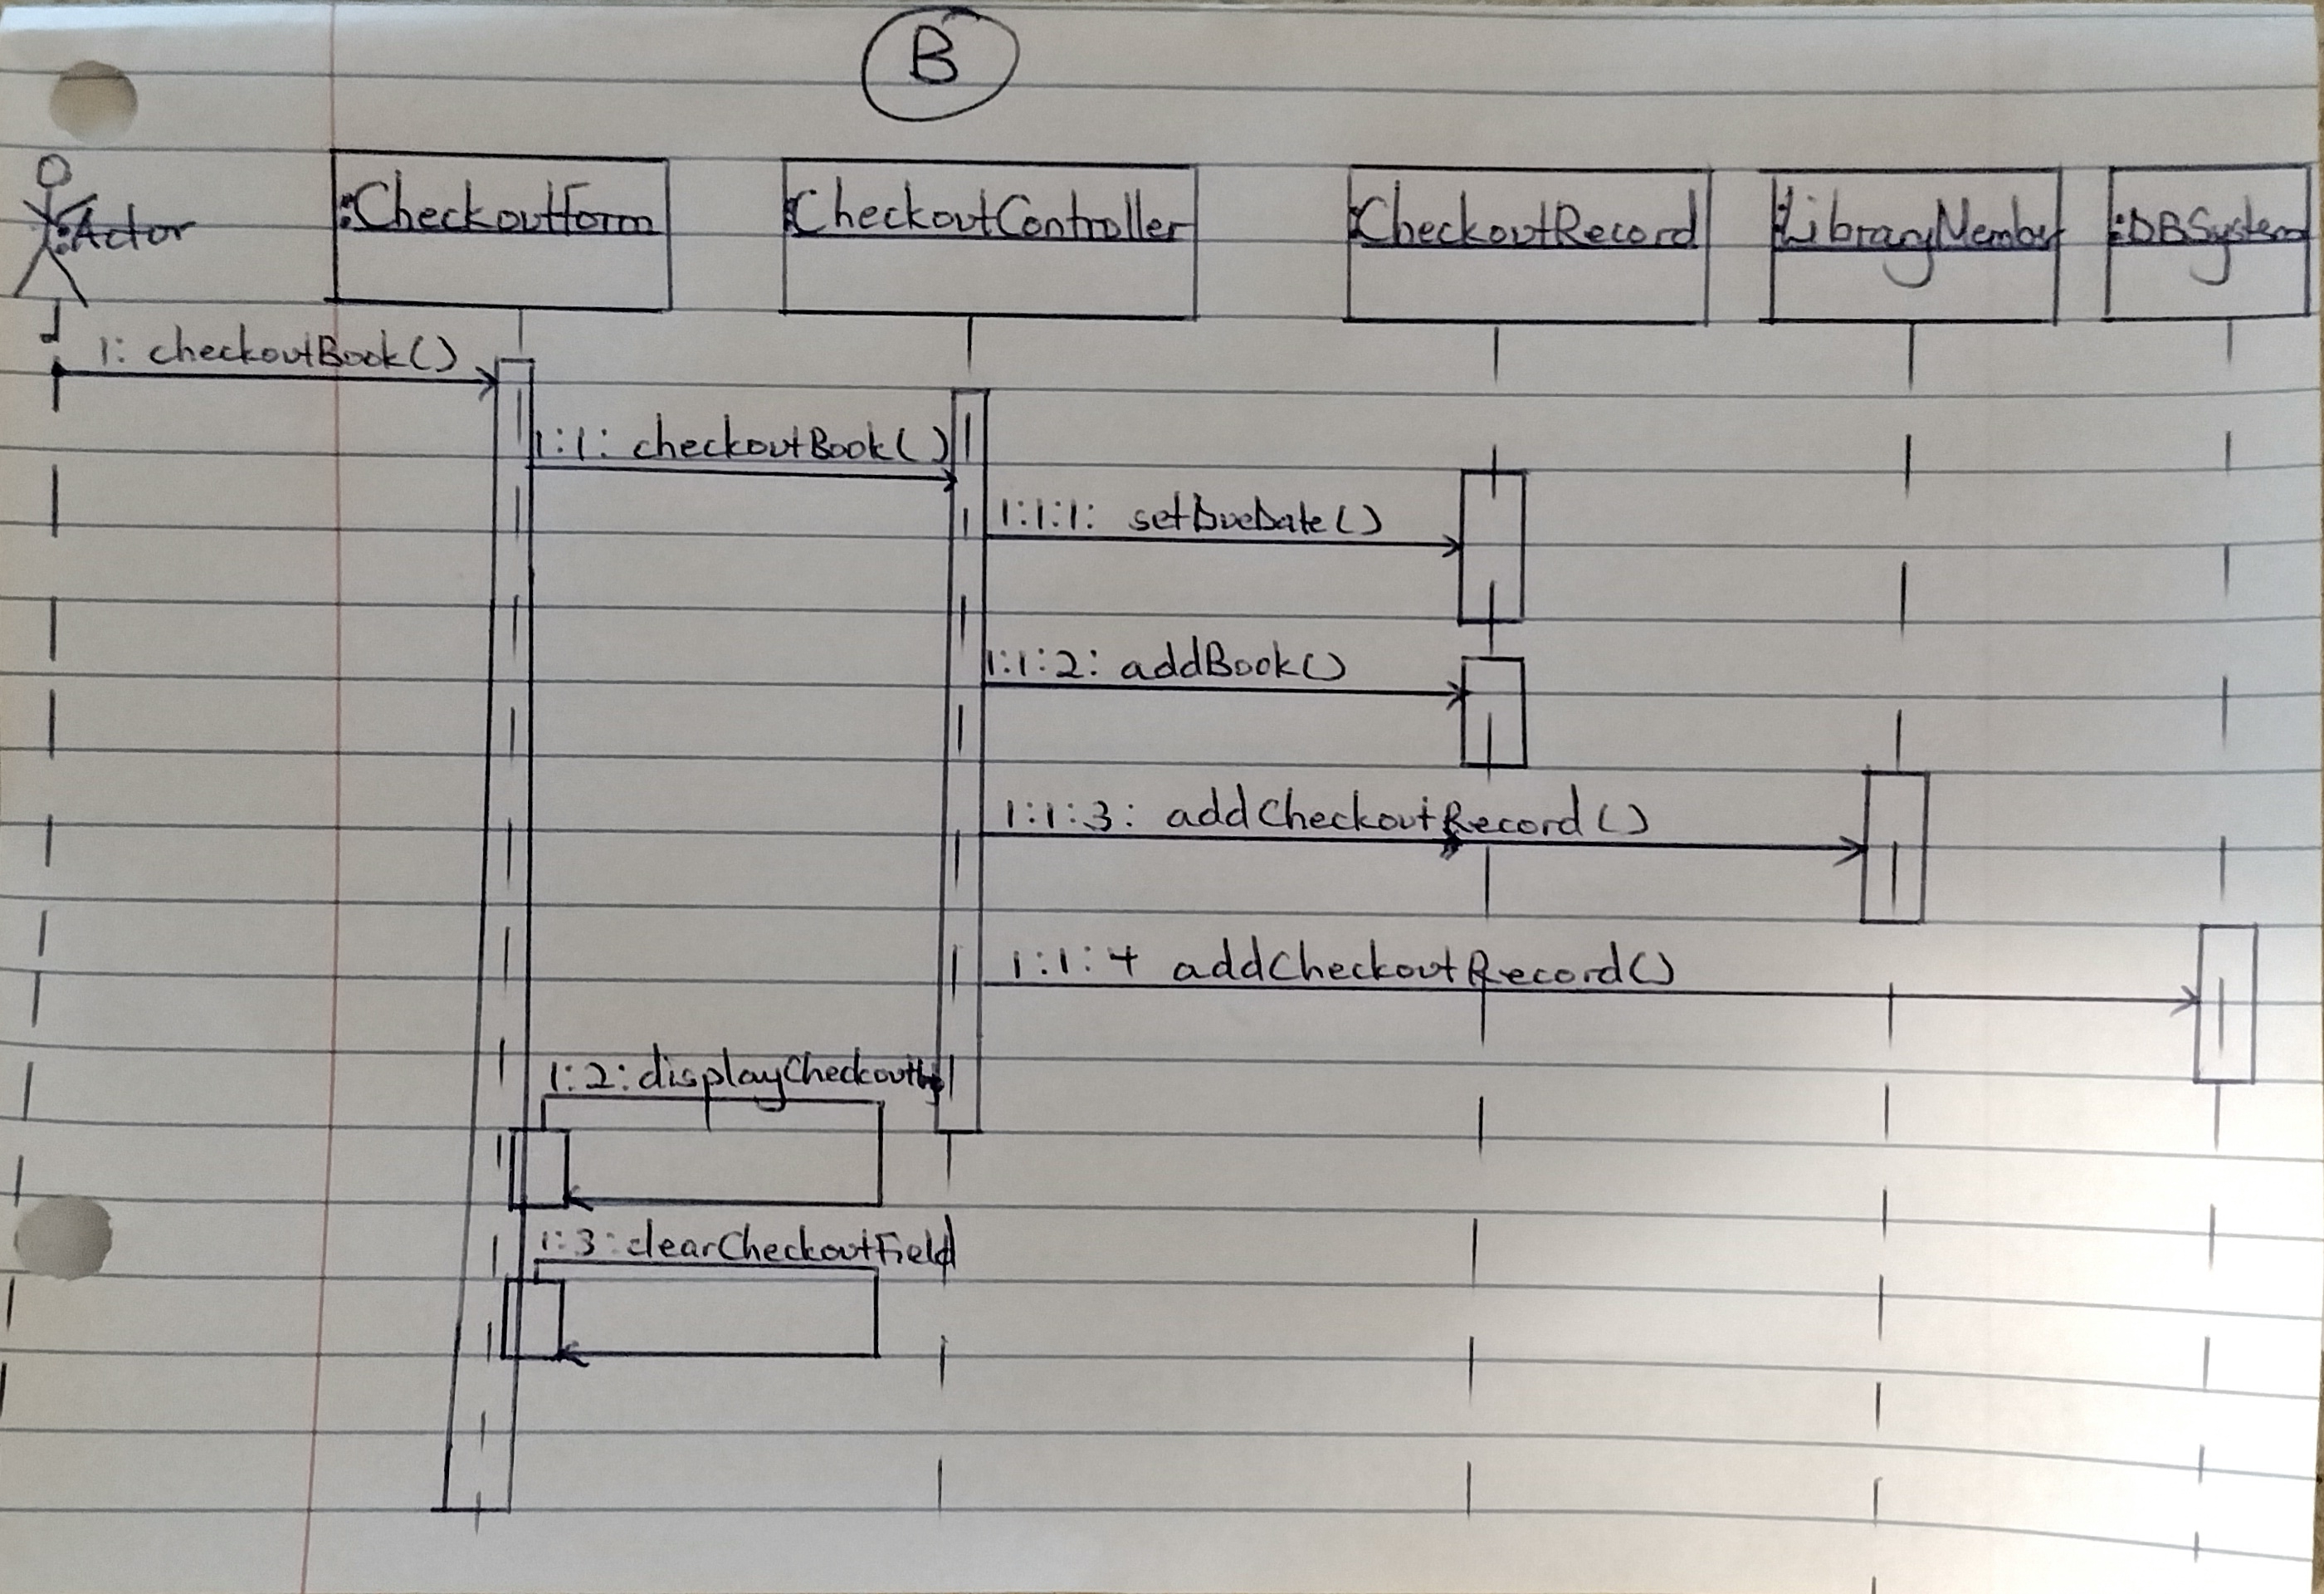 B
:Actor
:CheckoutForm
:CheckoutController
:CheckoutRecord
:LibraryMember
:DBSystem
1: checkoutBook()
1:1: checkoutBook()
1:1:1: setDueDate()
1:1:2: addBook()
1:1:3: addCheckoutRecord()
1:1:4 addCheckoutRecord()
1:2:displayCheckout
1:3:clearCheckoutField